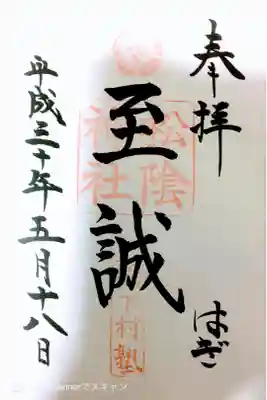 奉拝
はぎ
至誠
松陰
神社
下村塾
平成三十年五月十八日
nnerでスキャン